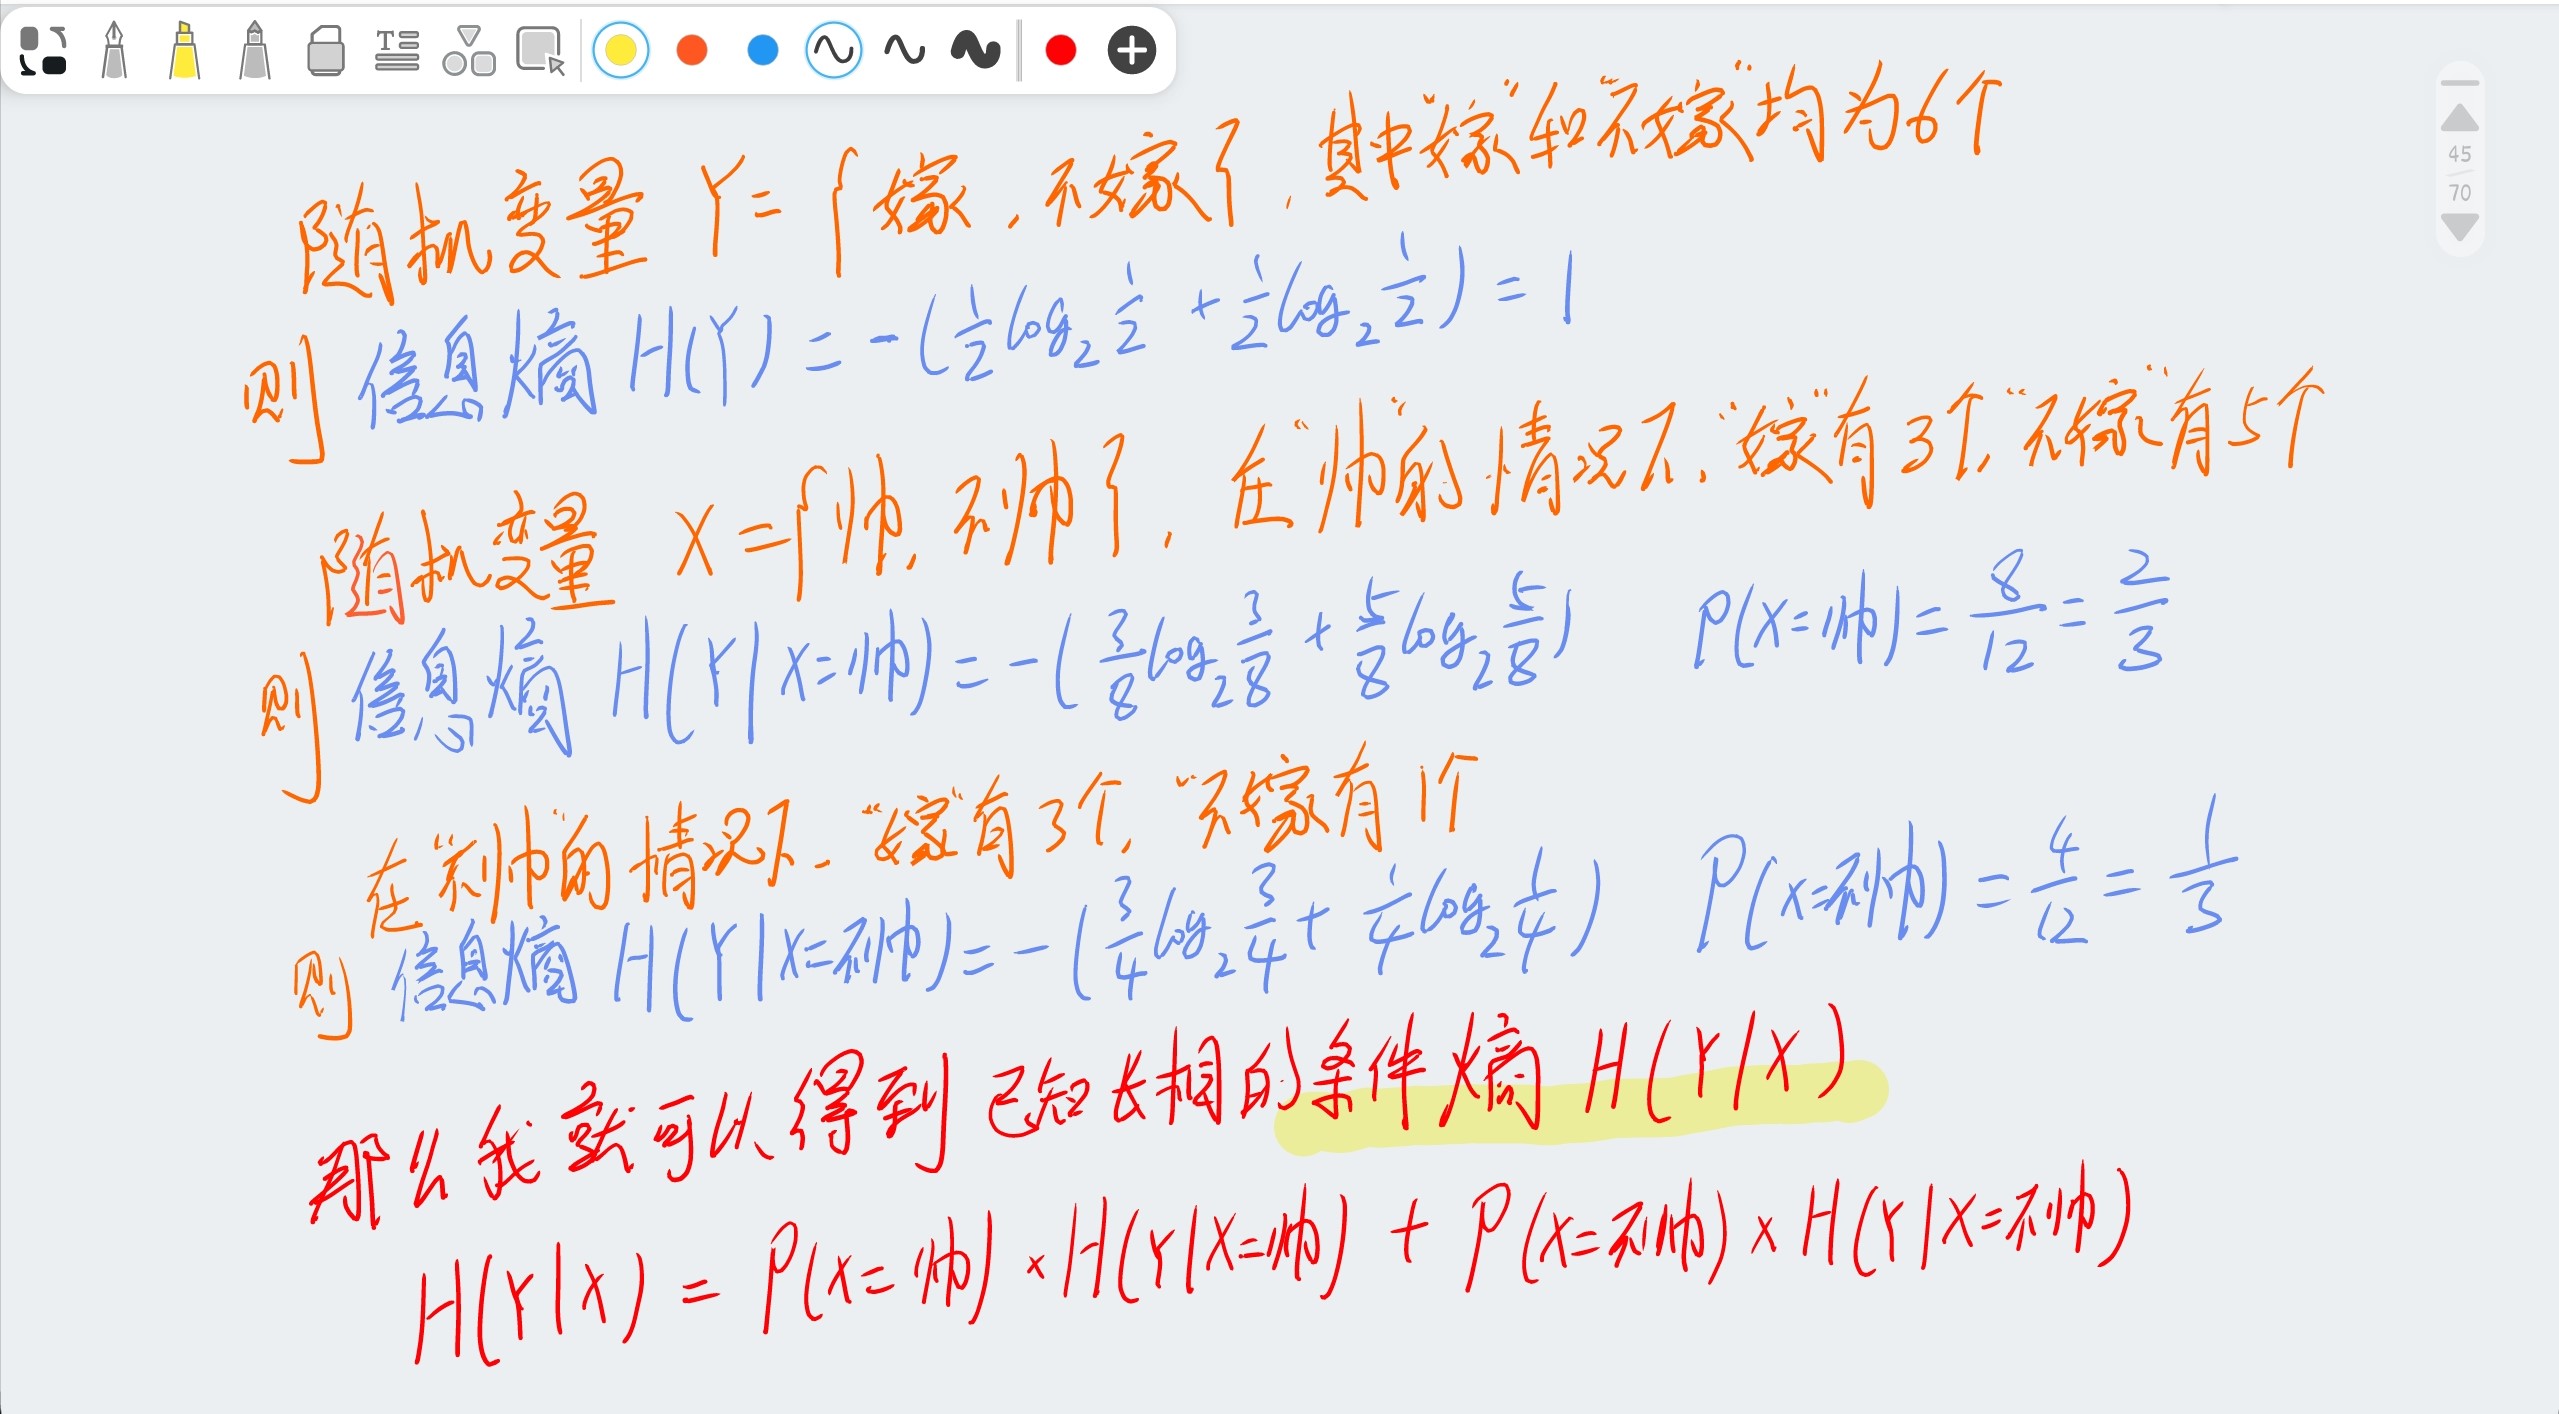 45
70
随机变量 Y={嫁,不嫁},其中"嫁"和"不嫁"均为6个
则 信息熵 H(Y) = -(1/2 log₂ 1/2 + 1/2 log₂ 1/2) = 1
随机变量 X={帅,不帅},在"帅"的情况下,"嫁"有3个,"不嫁"有5个
则 信息熵 H(Y|X=帅) = -(3/8 log₂ 3/8 + 5/8 log₂ 5/8) P(X=帅) = 8/12 = 2/3
在"不帅"的情况下,"嫁"有3个,"不嫁有1个
则 信息熵 H(Y|X=不帅) = -(3/4 log₂ 3/4 + 1/4 log₂ 1/4) P(X=不帅) = 4/12 = 1/3
那么我就可以得到已知长相的条件熵 H(Y|X)
H(Y|X) = P(X=帅) × H(Y|X=帅) + P(X=不帅) × H(Y|X=不帅)